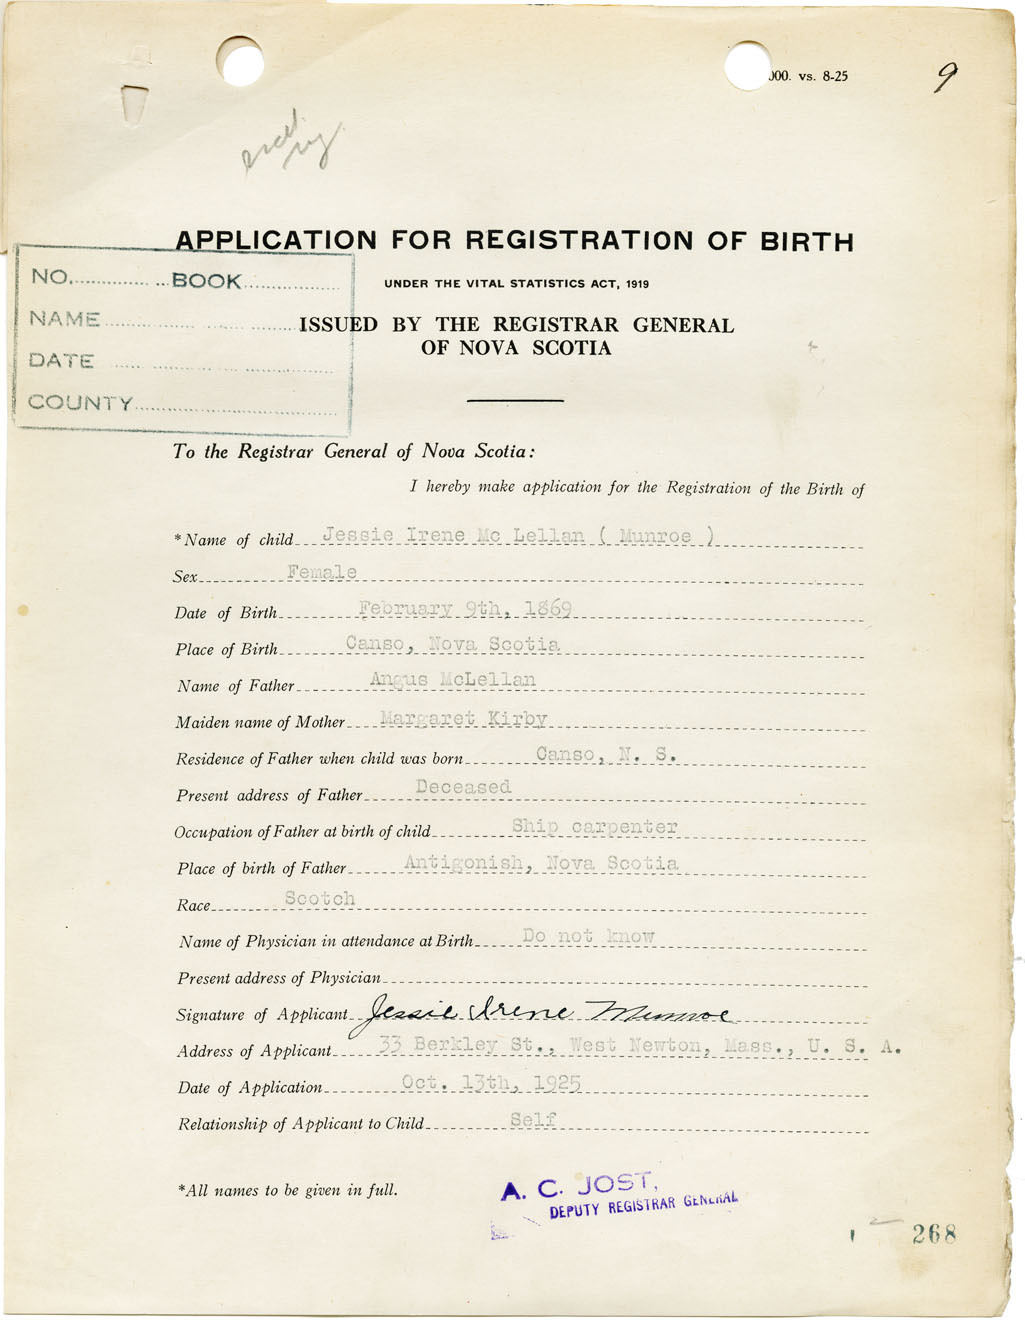 000. vs. 8-25
9
APPLICATION FOR REGISTRATION OF BIRTH
UNDER THE VITAL STATISTICS ACT, 1919
ISSUED BY THE REGISTRAR GENERAL
OF NOVA SCOTIA
NO. BOOK
NAME
DATE
COUNTY
To the Registrar General of Nova Scotia:
I hereby make application for the Registration of the Birth of
*Name of child Jessie Irene Mc Lellan ( Munroe )
Sex Female
Date of Birth February 9th, 1869
Place of Birth Canso, Nova Scotia
Name of Father Angus McLellan
Maiden name of Mother Margaret Kirby
Residence of Father when child was born Canso, N. S.
Present address of Father Deceased
Occupation of Father at birth of child Ship carpenter
Place of birth of Father Antigonish, Nova Scotia
Race Scotch
Name of Physician in attendance at Birth Do not know
Present address of Physician
Signature of Applicant Jessie Irene Munroe
Address of Applicant 33 Berkley St., West Newton, Mass., U. S. A.
Date of Application Oct. 13th, 1925
Relationship of Applicant to Child Self
*All names to be given in full.
A. C. JOST,
DEPUTY REGISTRAR GENERAL
268